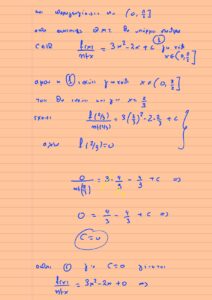 και παραγωγίσιμη στο (0, π/2]
από συνέπειες Θ.Μ.Τ. θα υπάρχει σταθερά
c∈ℝ f(x)/ημx = 3x² - 2x + c ① για κάθε x∈(0, π/2]
αφού η ① ισχύει για κάθε x∈(0, π/2]
τότε θα ισχύει και για x = 2/3
έχουμε f(2/3)/ημ(2/3) = 3(2/3)² - 2·2/3 + c
αλλά f(2/3)=0
0/ημ(2/3) = 3·4/9 - 4/3 + c ⇒
0 = 4/3 - 4/3 + c ⇒
c=0
οπότε ① για c=0 γίνεται
f(x)/ημx = 3x² - 2x + 0 ⇒